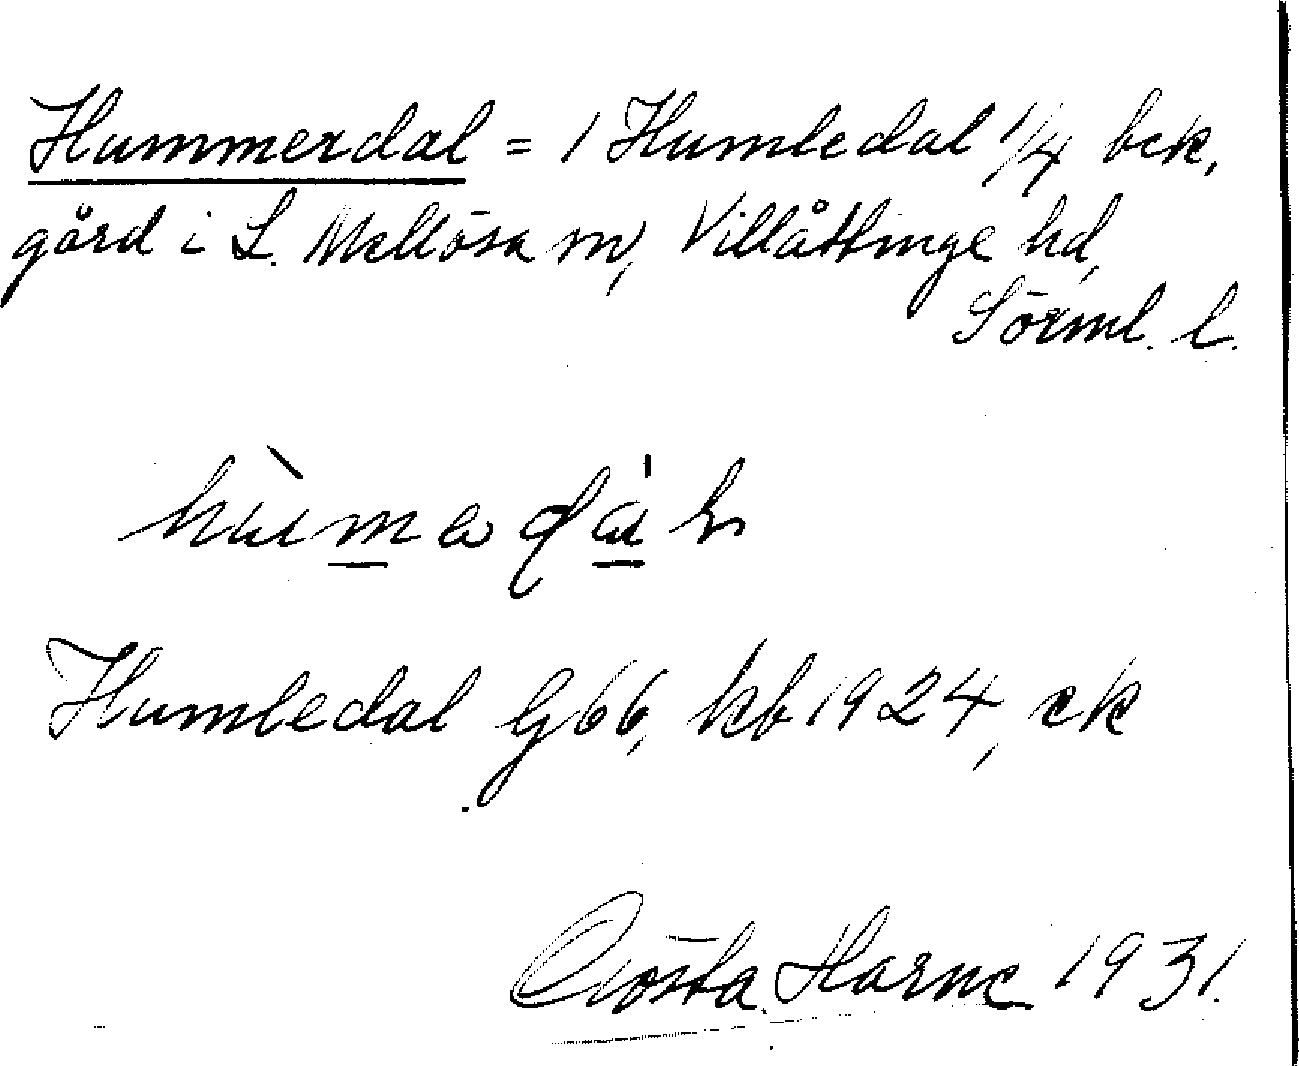 Hummerdal = 1 Humledal 1/4 bek,
gård i L. Mellösa sn, Villåttinge hd,
Sörml. l.
Humledal G66, kb 1924, ek
Gösta Harne 1931.